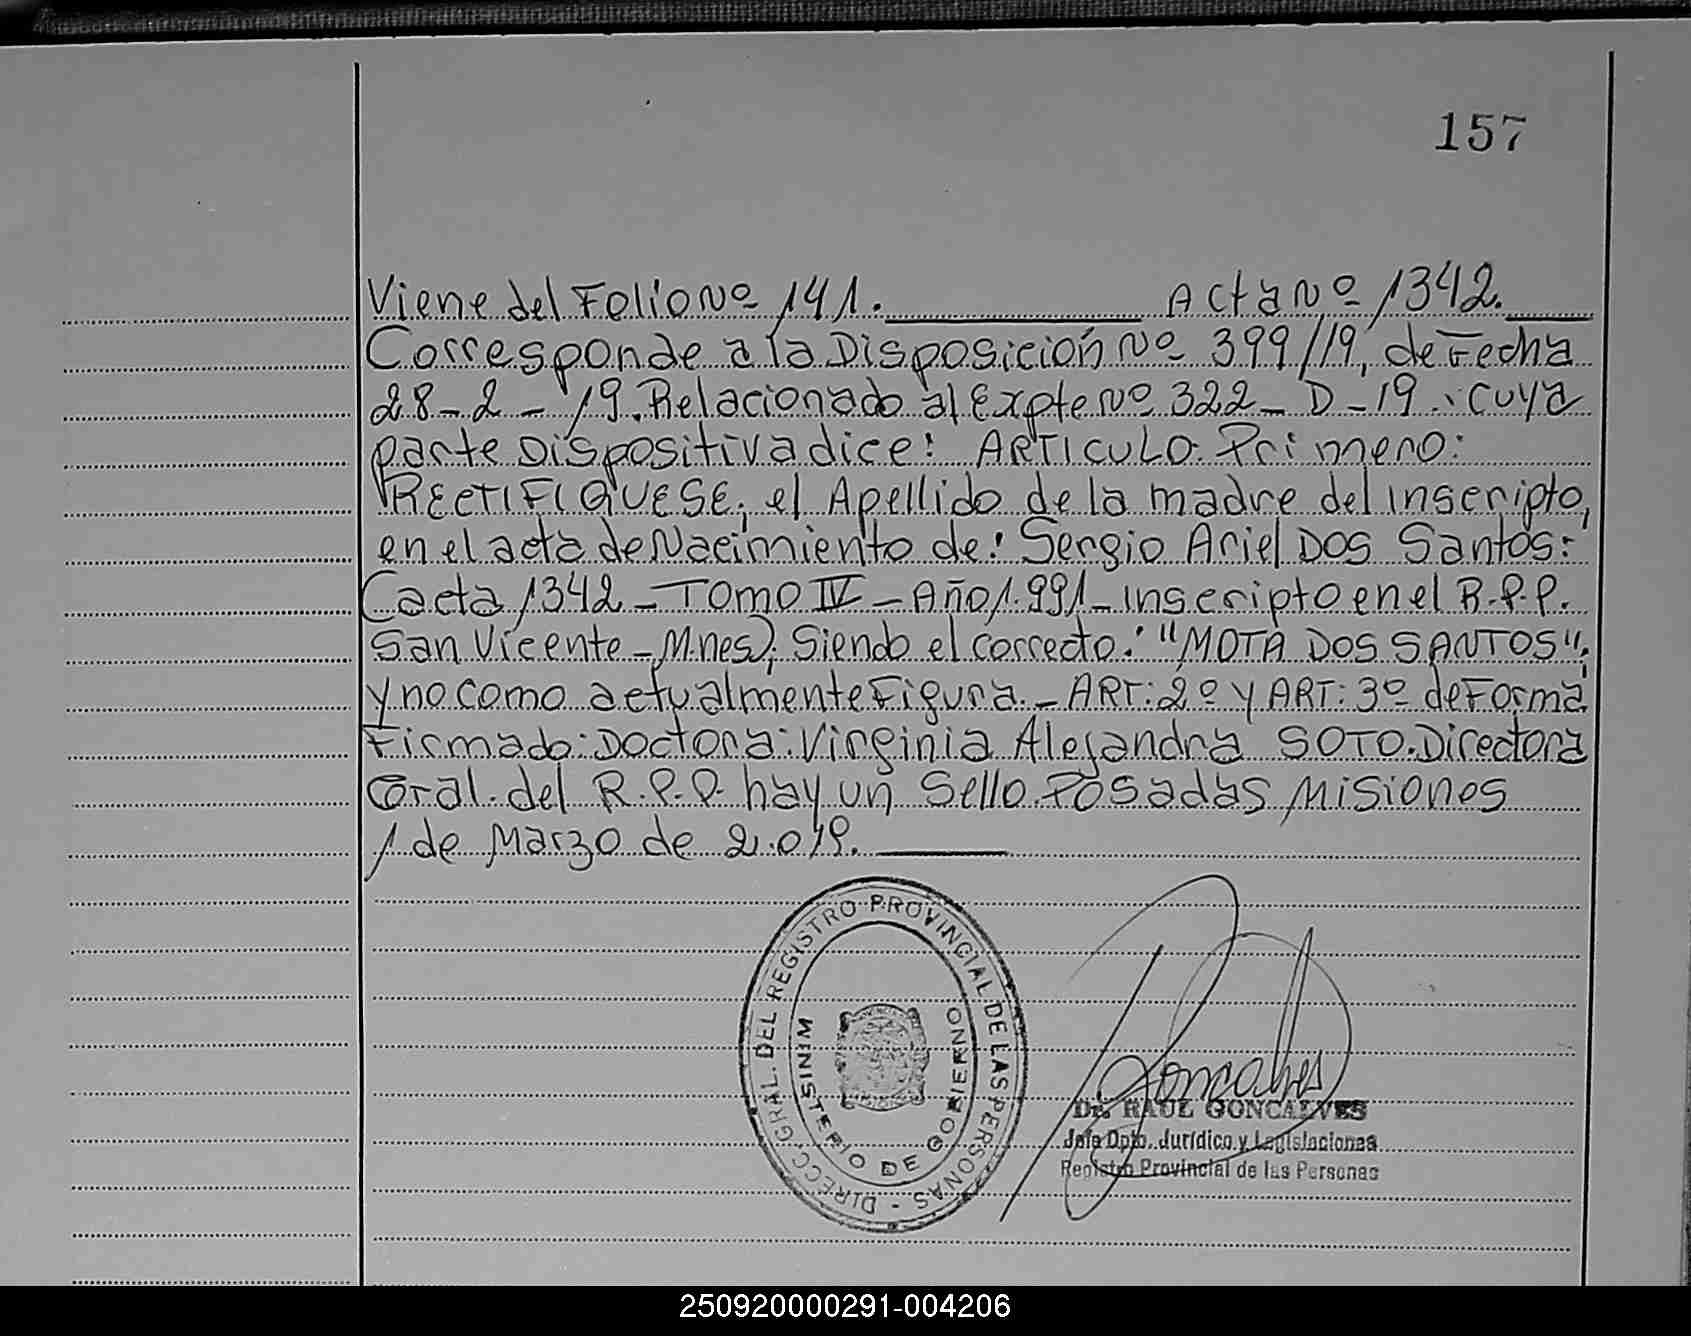 157
Viene del Folio Nº 141. Acta Nº 1342.
Corresponde a la Disposición Nº 399/19, de Fecha
28-2-19. Relacionado al Expte Nº 322-D-19. cuya
parte Dispositiva dice: ARTICULO: Primero:
RECTIFIQUESE; el Apellido de la madre del inscripto,
en el acta de Nacimiento de: Sergio Ariel DOS Santos:
(acta 1342 - TOMO IV - Año 1.991 - inscripto en el R.P.P.
San Vicente - Mnes); Siendo el correcto: "MOTA DOS SANTOS";
y no como actualmente Figura. - ART: 2º y ART: 3º de Forma
Firmado: Doctora: Virginia Alejandra SOTO. Directora
Gral. del R.P.P. hay un Sello. Posadas Misiones
1 de Marzo de 2.019.
DIRECC. GRAL. DEL REGISTRO PROVINCIAL DE LAS PERSONAS -
MINISTERIO DE GOBIERNO
Goncalves
Dr. RAUL GONCALVES
Jefe Dpto. Jurídico y Legislaciones
Registro Provincial de las Personas
250920000291-004206